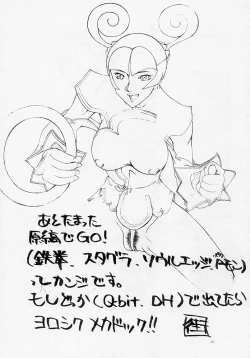 あとたまった
原稿でGO!
(鉄拳、スタグラ、ソウルエッジ、
ってカンジです。
もしどっか(Q-bit、DH)で出てたら
ヨロシク メカドック!!